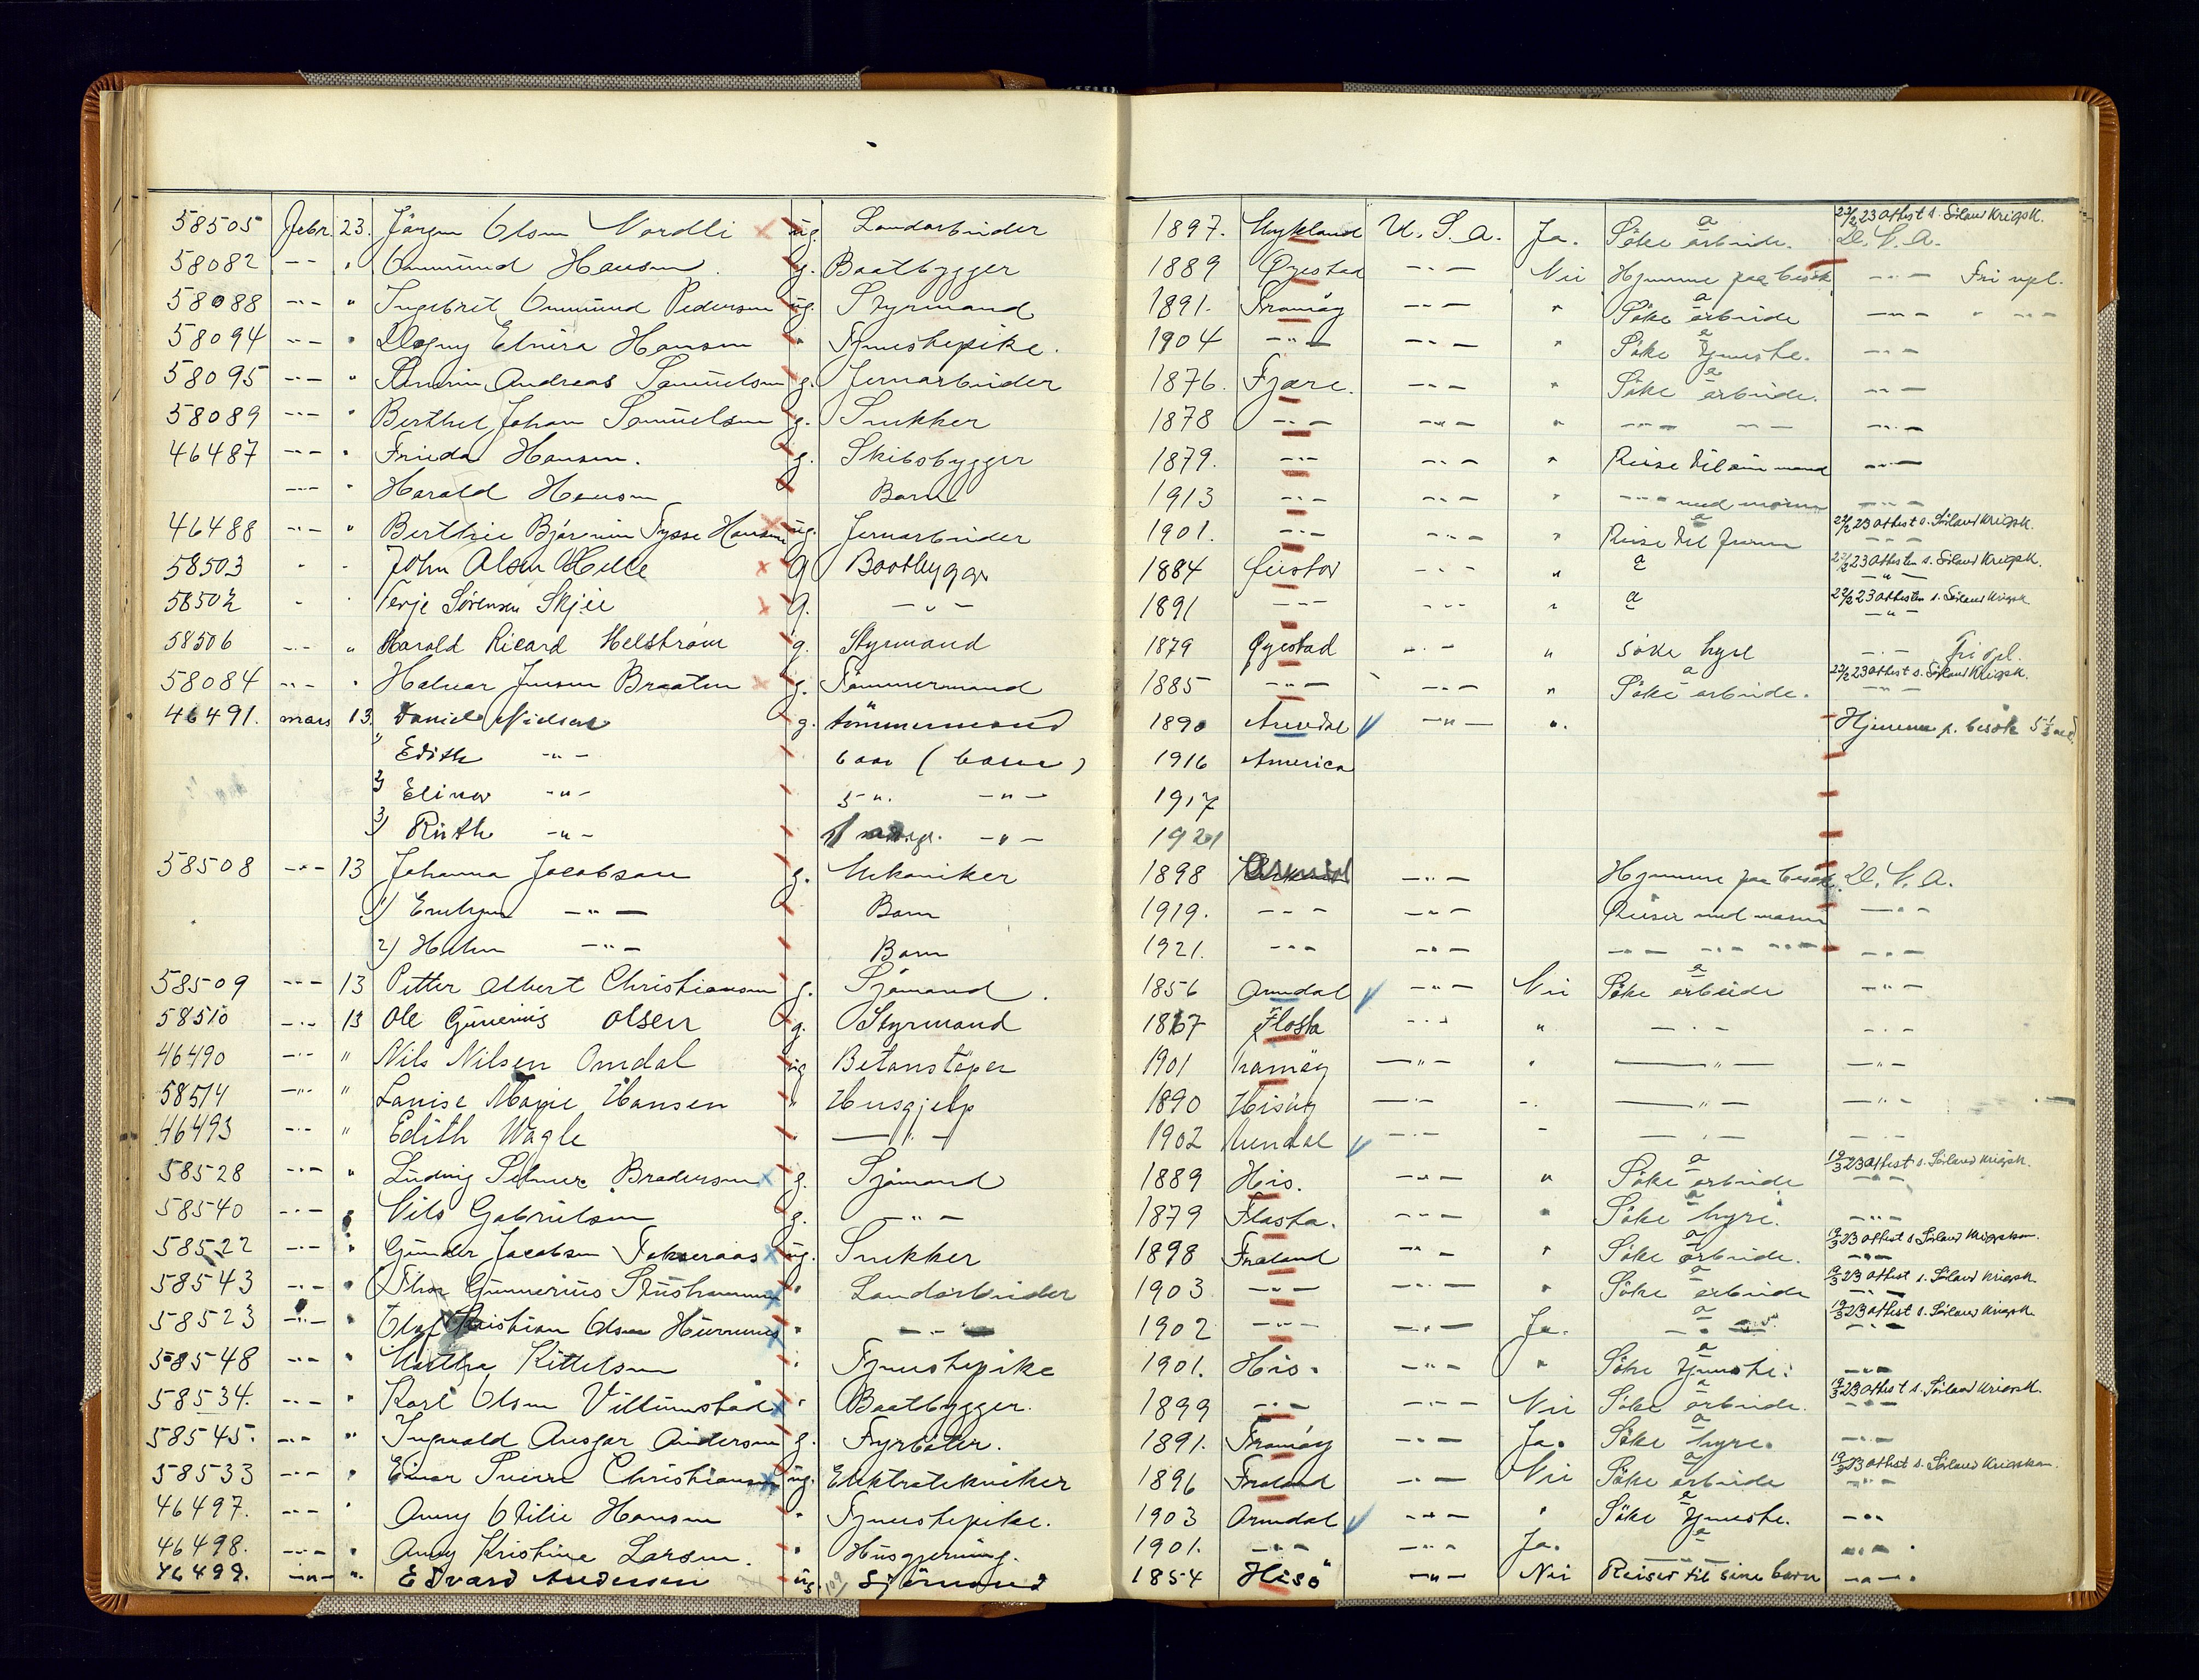 58505 Febr. 23. Jörgen Olsen Nordli x ug. Landarbeider 1897. Mykland U. S. A. Ja. Söke a arbeide. 23/2 23 attest s. Sörland Krigsk. D. N. A.
58082 -"- " Ommund Hansen. g. Baatbygger 1889 Øyestad -"- Nei Hjemme paa besök -"- Fri vpl.
58088 -"- " Ingebret Ommund Pedersen ug. Styrmand 1891. Tromöy -"- " Söke a arbeide -"- " -"-
58094 -"- " Dagny Elvira Hansen " Tjenestepike. 1904 -"- -"- " Söke a tjeneste. -"-
58095 -"- " Andreas Samuelsen g. Jernarbeider 1876. Fjære. -"- " Söke a arbeide. -"-
58089 -"- " Berthel Johan Samuelsen g. Snekker 1878 -"- -"- " -"- -"- -"-
46487 -"- " Frieda Hansen. g. Skibsbygger 1879. -"- -"- " Reise til sin mand -"-
-"- " Harald Hansen Barn 1913 -"- -"- " -"- med moren -"-
46488 -"- " Berthie Bjarnin Tysse Hansen x ug. Jernarbeider 1901. -"- -"- " Reise til a faren 22/2 23 attest s. Sörland Krigsk. -"-
58503 " " John Olsen Helle x g Baatbygger 1884 Gjustad -"- " a 22/2 23 attesten s. Sörland Krigsk. -"-
58502 " " Terje Sørensen Skjei x g. -"- 1891 -"- -"- " a 22/2 23 attesten s. Sörland Krigsk -"-
58506 -"- " Harald Ricard Helström g. Styrmand 1879 Øyestad -"- " söke hyre -"- Fri vpl.
58084 -"- " Halvar Jensen Braaten x g. Tömmermand 1885 -"- -"- " Söke a arbeide. 22/2 23 attest s. Sörland Krigsk. -"-
46491. mars 13. Daniel Nielsen g. tömmermand 1890 Arendal -"- ". Hjemme p. besök
1) Edith -"- 6 aar (barn) 1916 America
2) Elinor -"- 5 ". -"- 1917
3) Rüth -"- -"- 1921
58508 -"- 13 Johanna Jacobsen g. Mekaniker 1898 Arendal -"- Hjemme paa besök. D. N. A.
1) Evelyn -"- Barn 1919. -"- -"- Reiser med moren -"-
2) Helen -"- Barn 1921. -"- -"- -"- -"- -"- -"-
58509 -"- 13 Petter Albert Christiansen g. Sjömand. 1856 Arendal -"- Nei Söke a arbeide -"-
58510 -"- 13 Ole Gunerius Olsen g. Styrmand 1867 Flosta -"- " -"- -"-
46490 -"- " Nils Nilsen Omdal ug Betonstöper 1901 Tromöy -"- " -"- -"-
58514 -"- " Lovise Marie Hansen " Husgjelp 1890 Hisöy -"- -. -"- -"-
46493 -"- " Edith Wagle " -"- 1902 Arendal -"- - -"- -"-
58528 -"- " Ludvig Selmer Bradersen x g. Sjömand 1889 His. -"- " Söke a arbeide 19/3 23 attest s. Sörland Krigsk. -"-
58540 -"- " Nils Gabrielsen g. -"- 1879 Flosta. -"- " Söke a hyre. -"-
58522 -"- " Gunder Jacobsen x ug. Snekker 1898 Froland -"- " Söke a arbeide. 19/3 23 attest s. Sörland Krigskom. -"-
58543 -"- " Thor Gunnerius x " Landarbeider 1903 -"- -"- " Söke a arbeide 19/3 23 attest s. Sörland Krigsk. -"-
58523 -"- Olaf Kristian Olsen x " -"- 1902 -"- -"- Ja. a -"- 19/3 23 attest s. Sörland Krigsk -"-
58548 -"- " Martha Kittelsen " Tjenestepike 1901. His. -"- " Söke a tjeneste. -"-
58534. -"- " Karl Olsen Villumstad x " Baatbygger. 1899 -"- -"- Nei Söke a arbeide. 19/3 23 attest s. Sörland Krigsk. -"-
58545. -"- " Ingvald Ansgar Andersen g. Fyrböter. 1891. Tromöy -"- Ja. Söke a hyre. -"-
58533 -"- " Einar Sverre Christiansen x ug. Elektrotekniker 1896 Froland -"- Nei Söke a arbeide 19/3 23 attest s. Sörland Krigskom. -"-
46497. -"- " Anny Otilie Hansen " Tjenestepike. 1903 Arendal -"- " Söke a tjeneste. -"-
46498. -"- " Anny Kristine Larsen. " Husgjerning. 1901. -"- -"- Ja. a -"- -"-.
46499. -"- ". Edvard Andersen ug. 109 Sjömand 1854 Hisö -"- Nei Reiser til sine barn -"-.